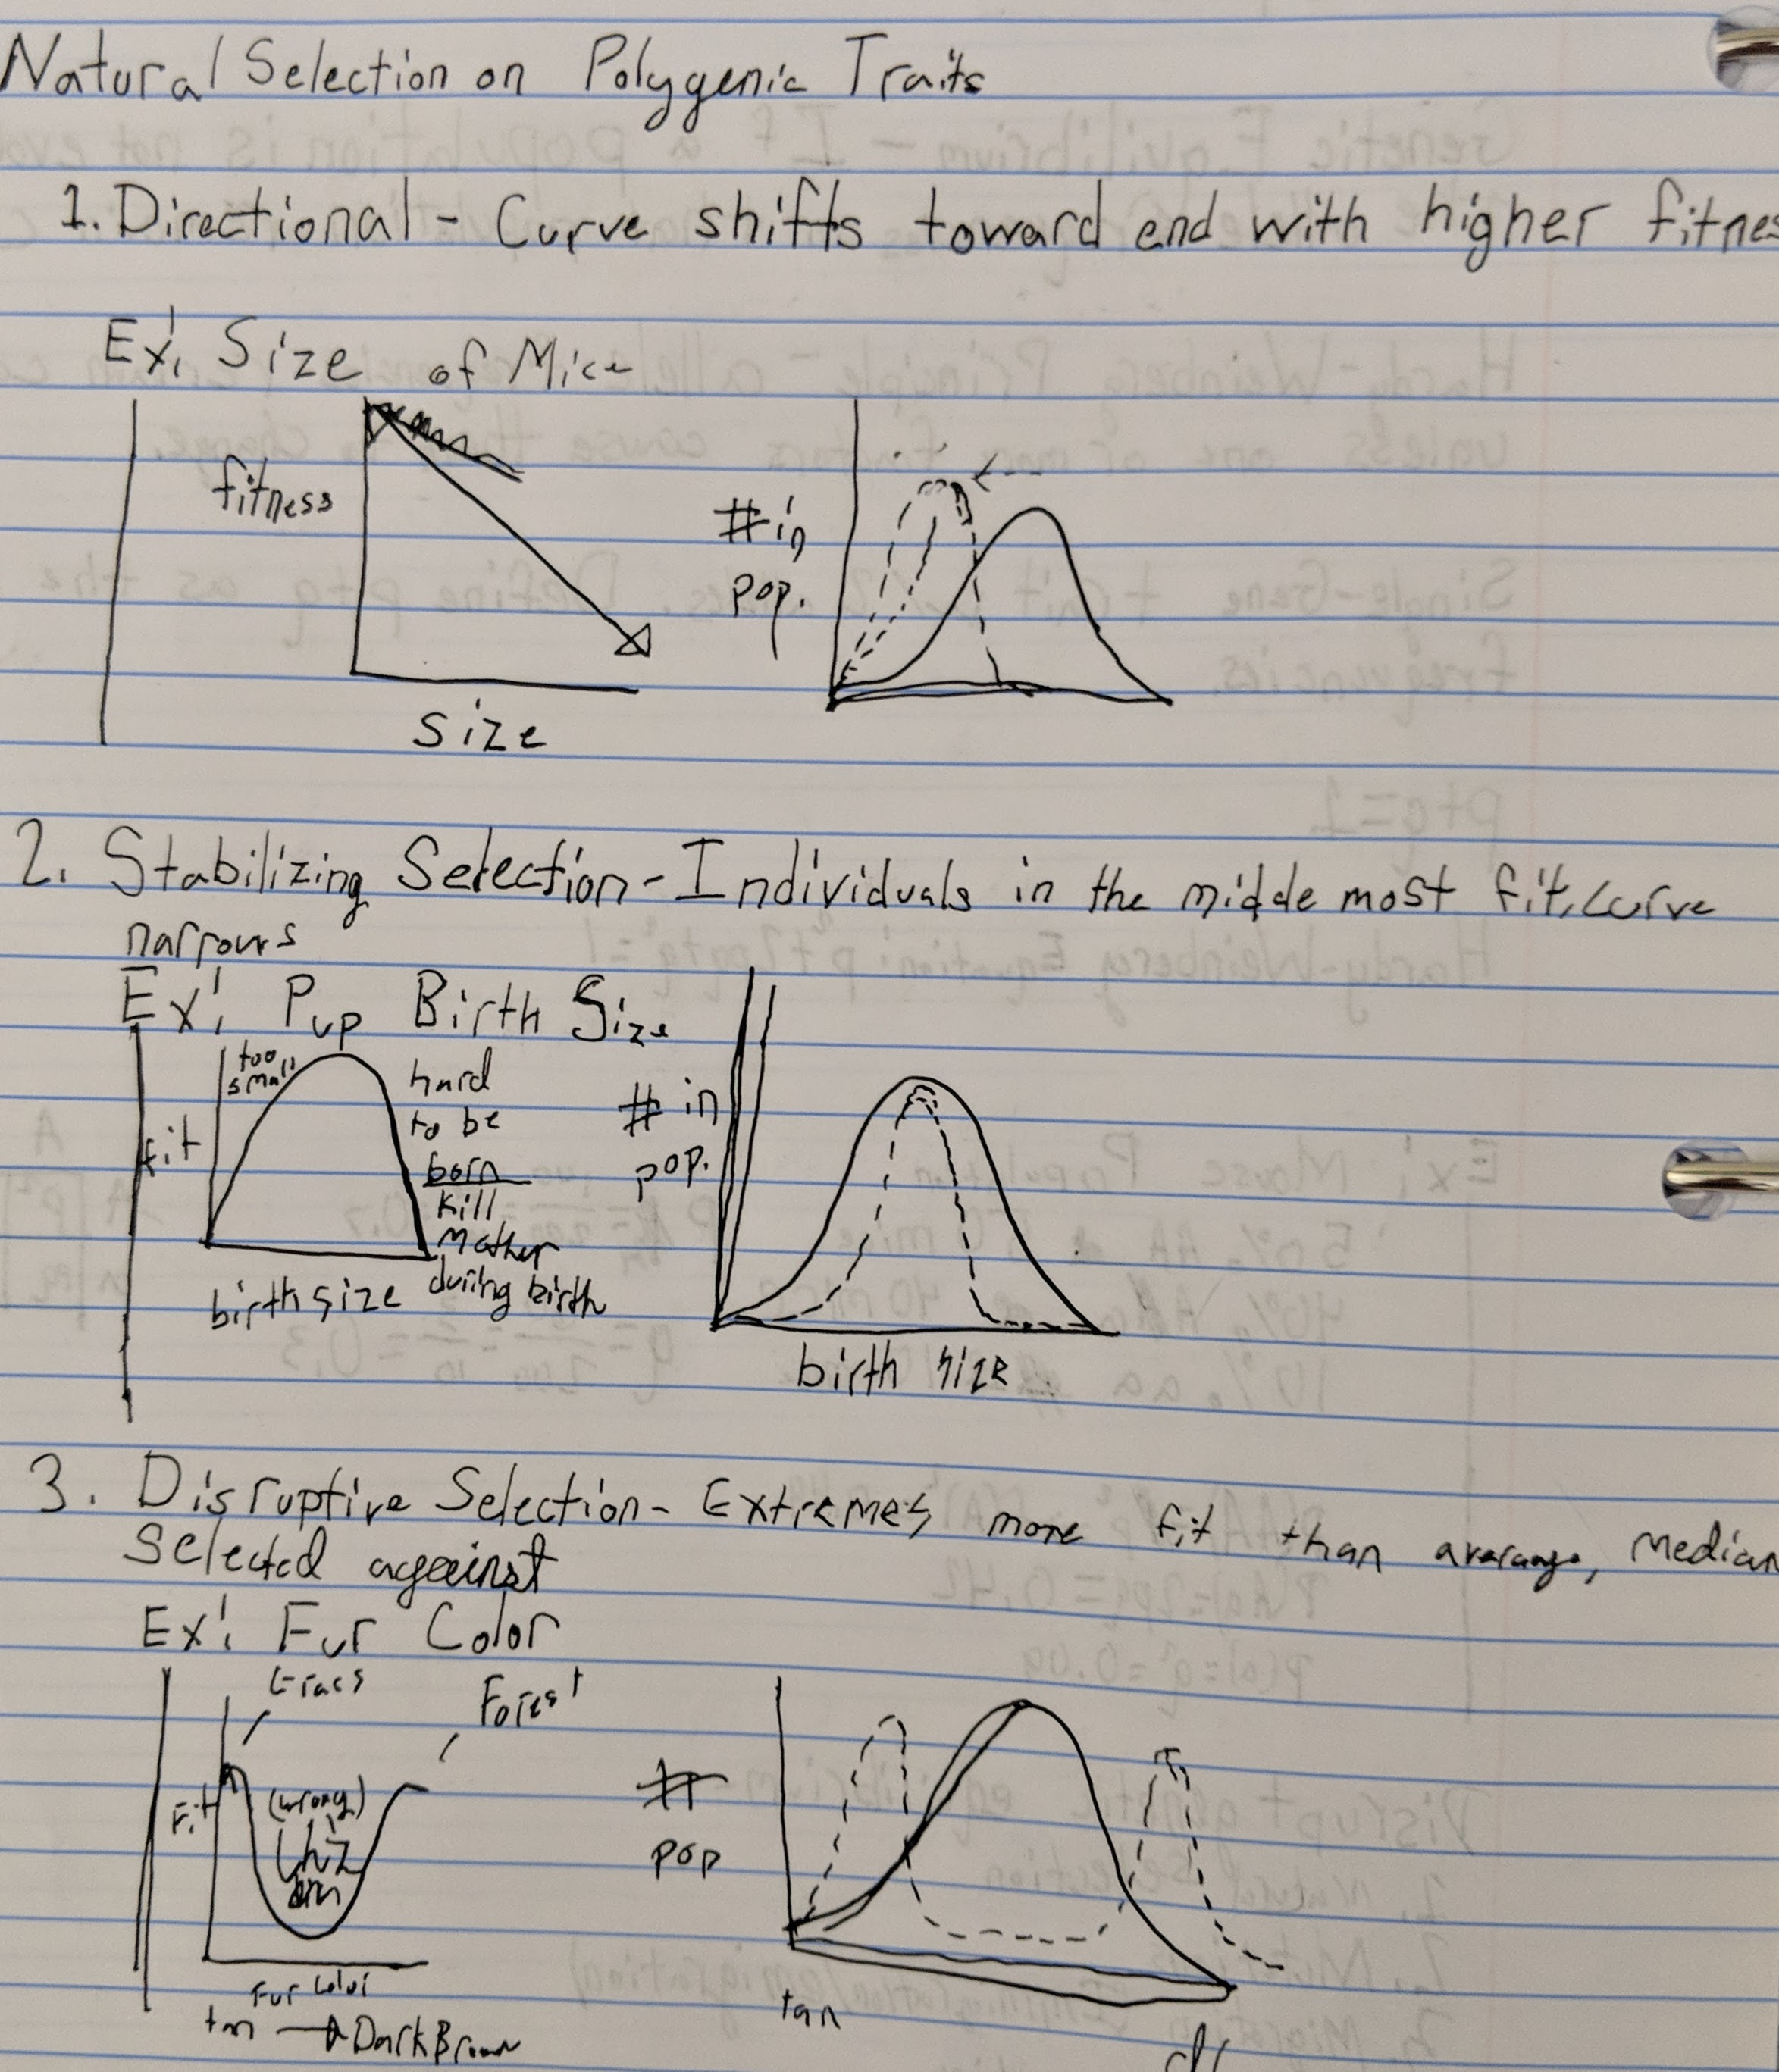 Natural Selection on Polygenic Traits
1. Directional - Curve shifts toward end with higher fitnes
Ex: Size of Mice
fitness
size
# in
pop.
2. Stabilizing Selection - Individuals in the midde most fit, curve
narrows
Ex: Pup Birth Size
too
small
hard
to be
born
kill
mother
during birth
fit
birth size
# in
pop.
birth size
3. Disruptive Selection - Extremes more fit than average, median
selected against
Ex: Fur Color
Forest
Fit
(wrong)
Fur Color
tan → Dark Brown
#
pop
tan